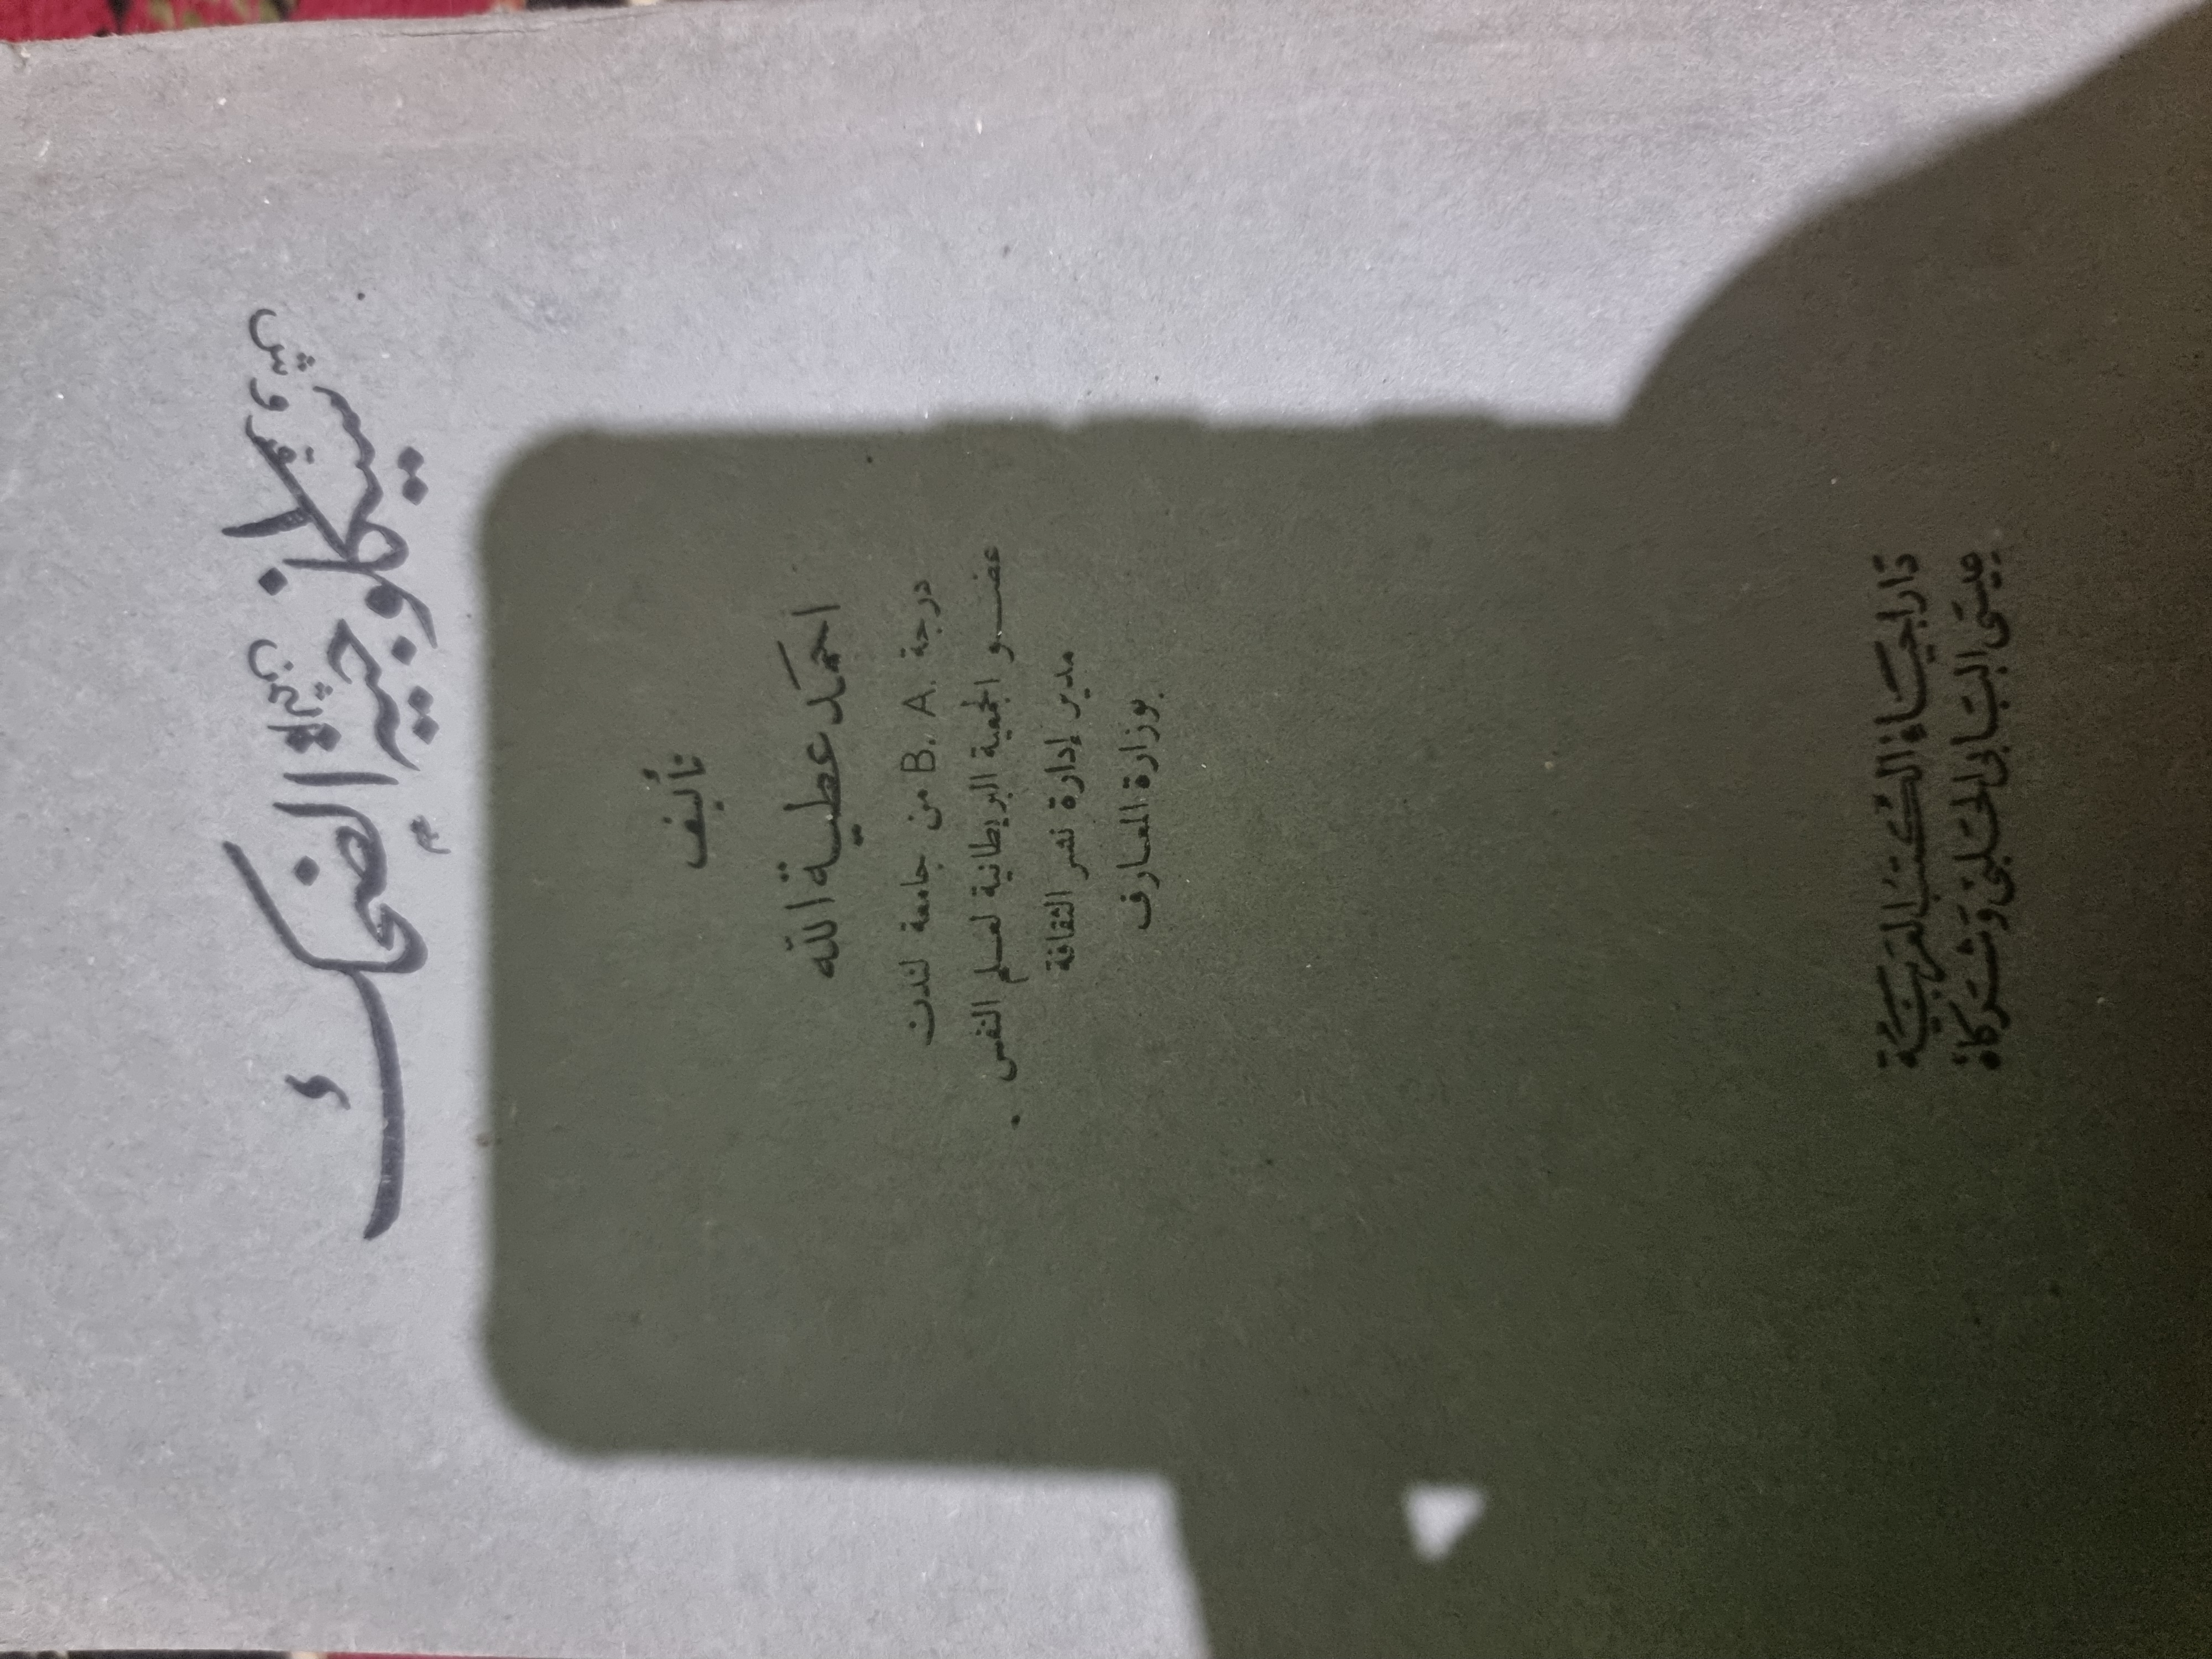 سيكلوجية الضحك
الثمن ١٠ قروش
تأليف
احمد عطية الله
درجة B. A. من جامعة لندن
عضو الجمعية البريطانية لعلم النفس
مدير إدارة نشر الثقافة
بوزارة المعارف
دار إحياء الكتب العربية
عيسى البابى الحلبى وشركاه